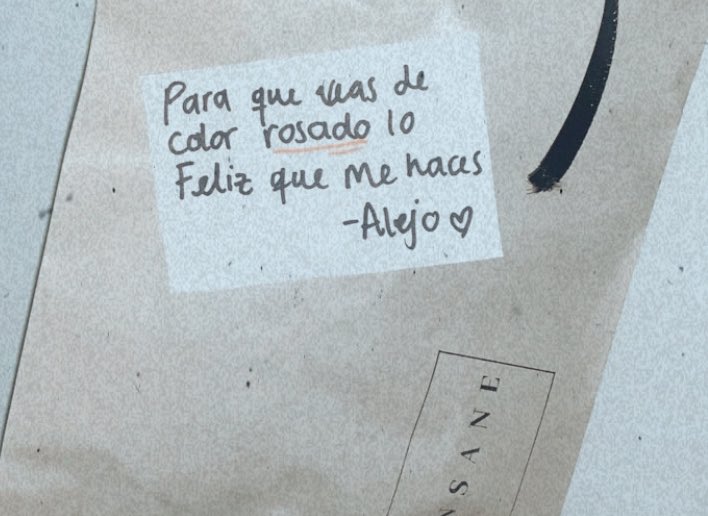 Para que veas de
color rosado lo
Feliz que me haces
-Alejo ♡
NSANE